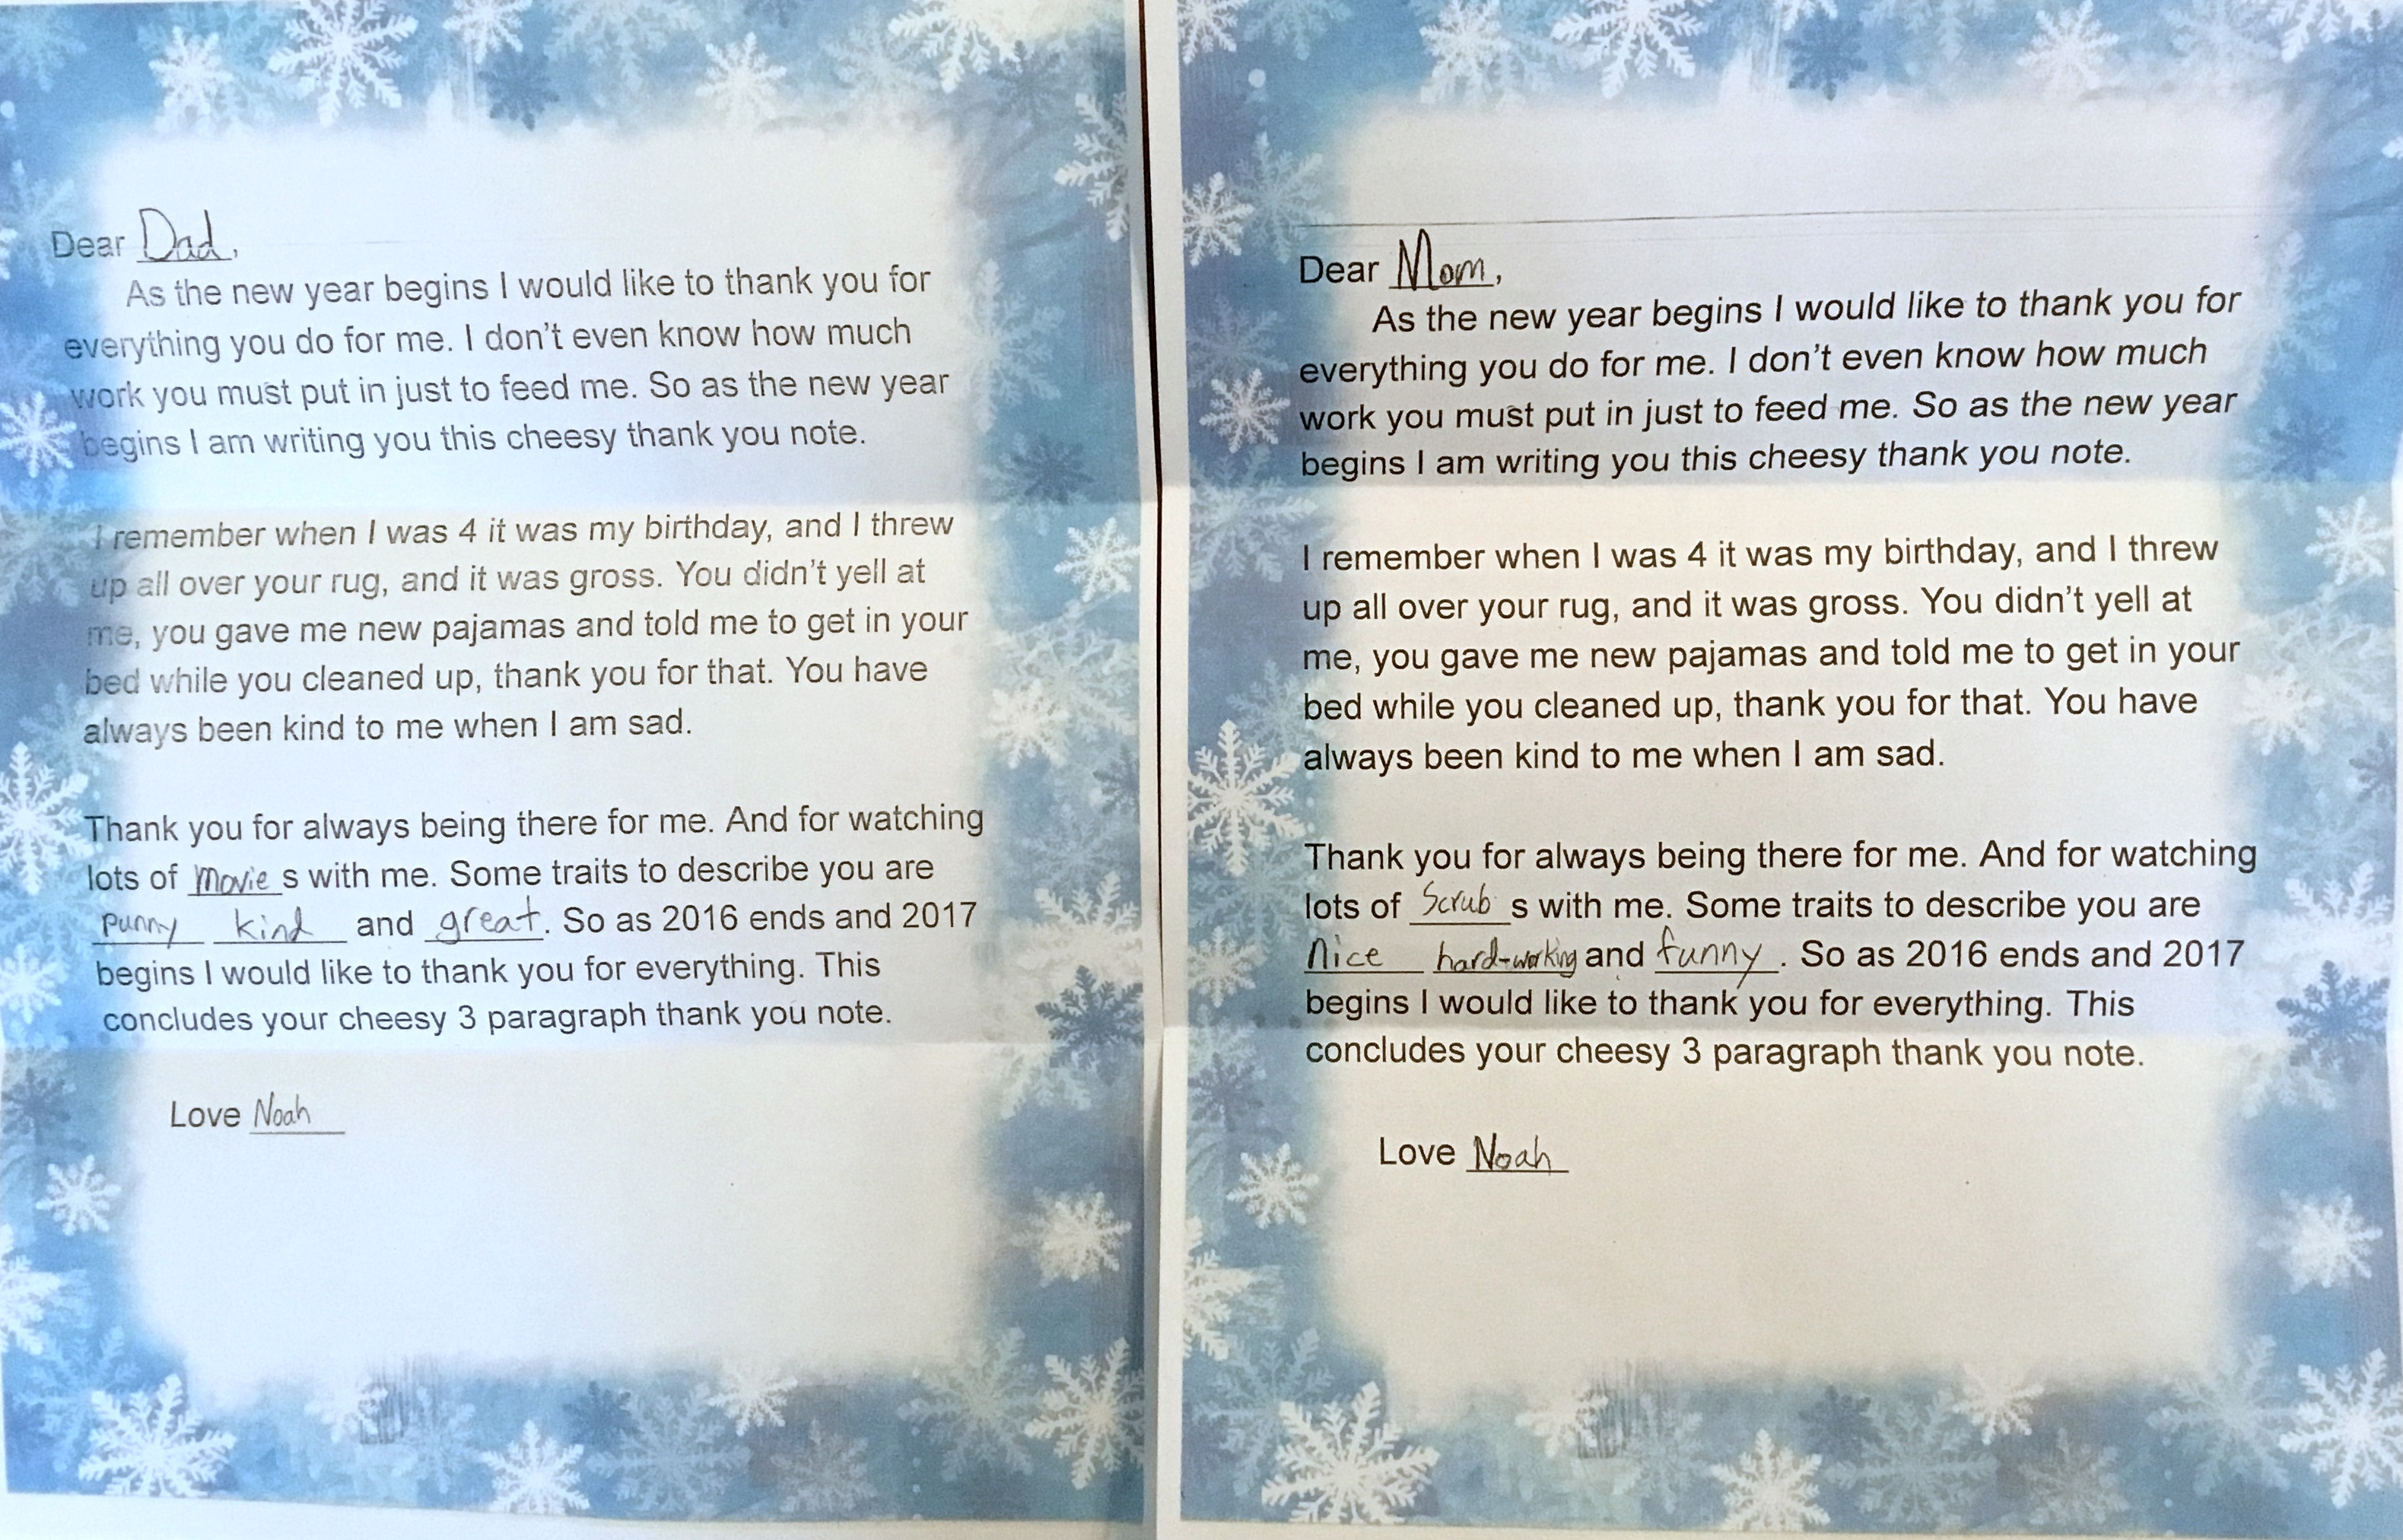 Dear Dad,
As the new year begins I would like to thank you for
everything you do for me. I don't even know how much
work you must put in just to feed me. So as the new year
begins I am writing you this cheesy thank you note.
I remember when I was 4 it was my birthday, and I threw
up all over your rug, and it was gross. You didn't yell at
me, you gave me new pajamas and told me to get in your
bed while you cleaned up, thank you for that. You have
always been kind to me when I am sad.
Thank you for always being there for me. And for watching
lots of movie s with me. Some traits to describe you are
punny kind and great. So as 2016 ends and 2017
begins I would like to thank you for everything. This
concludes your cheesy 3 paragraph thank you note.
Love Noah
Dear Mom,
As the new year begins I would like to thank you for
everything you do for me. I don't even know how much
work you must put in just to feed me. So as the new year
begins I am writing you this cheesy thank you note.
I remember when I was 4 it was my birthday, and I threw
up all over your rug, and it was gross. You didn't yell at
me, you gave me new pajamas and told me to get in your
bed while you cleaned up, thank you for that. You have
always been kind to me when I am sad.
Thank you for always being there for me. And for watching
lots of Scrub s with me. Some traits to describe you are
Nice hard-working and funny. So as 2016 ends and 2017
begins I would like to thank you for everything. This
concludes your cheesy 3 paragraph thank you note.
Love Noah